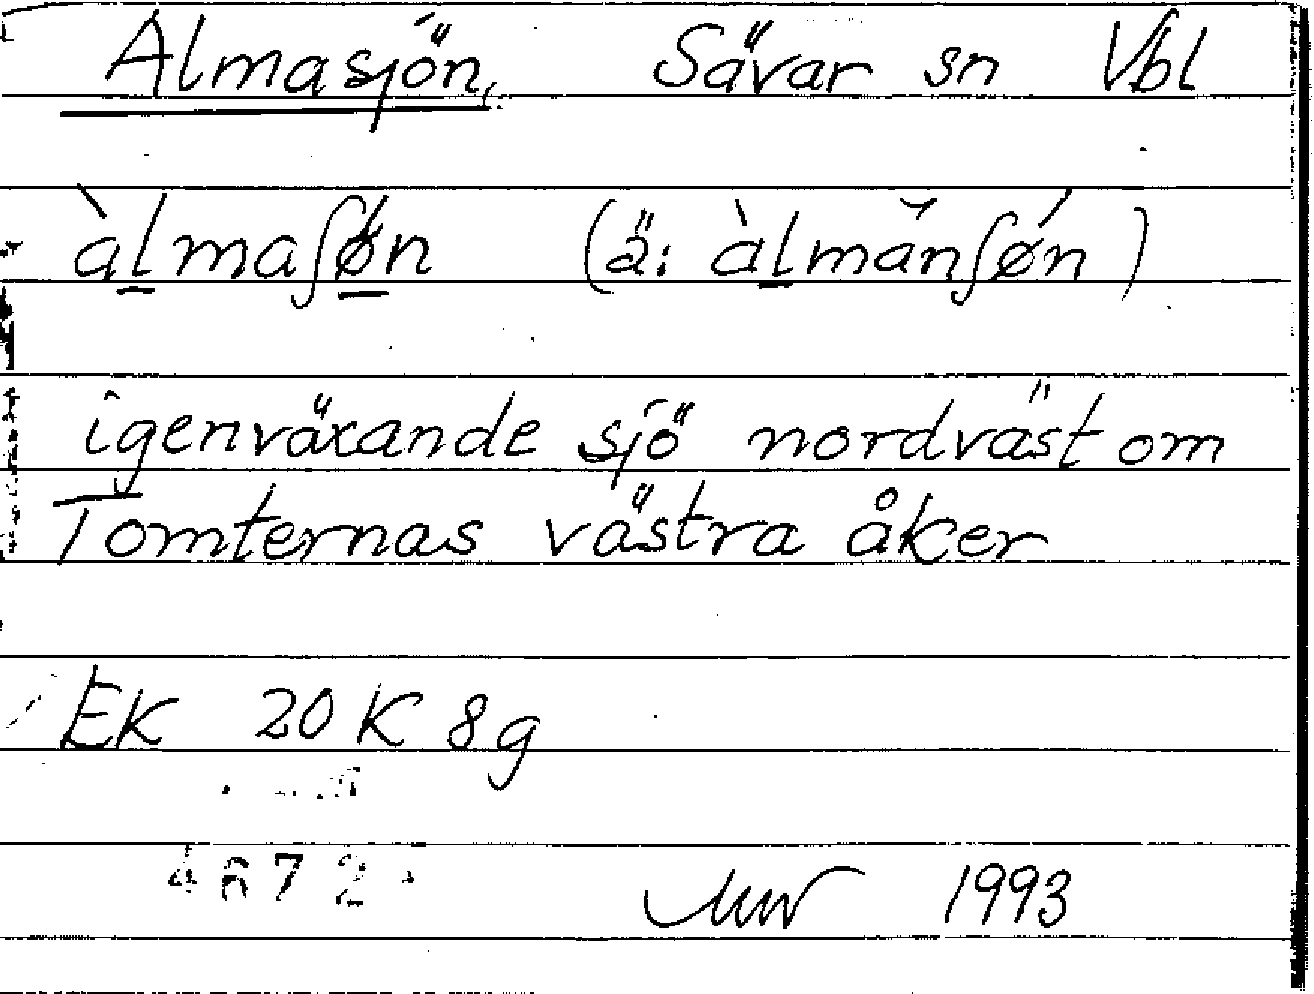 Almasjön, Sävar sn Vbl
àlmaʃøn (ä: àlmănʃøń)
igenväxande sjö nordväst om
Tomternas västra åker
EK 20 K 8g
1993